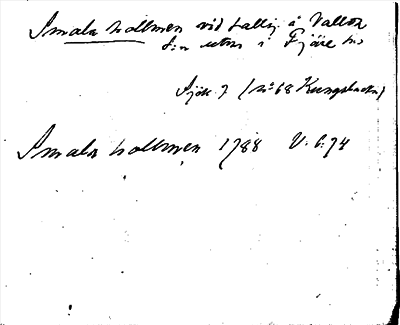 Smala holmen vid Lallig å Vallda
S:n utm i Fjäre hd
Sjök. 7 (N:o 68 Kungsbacka)
Smala holmen 1788 V. 6:74